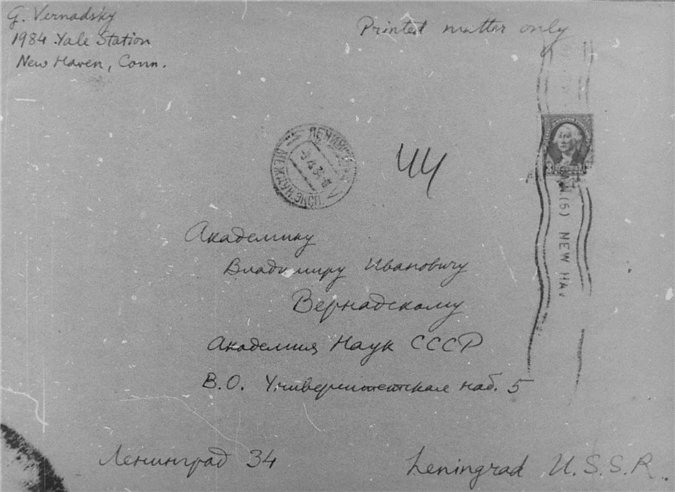 G. Vernadsky
1984 Yale Station
New Haven, Conn.
Printed matter only
44
(5) NEW HAV
Академику
Владимиру Ивановичу
Вернадскому
Академия Наук СССР
В.О. Университетская наб. 5
Ленинград 34
Leningrad U.S.S.R.